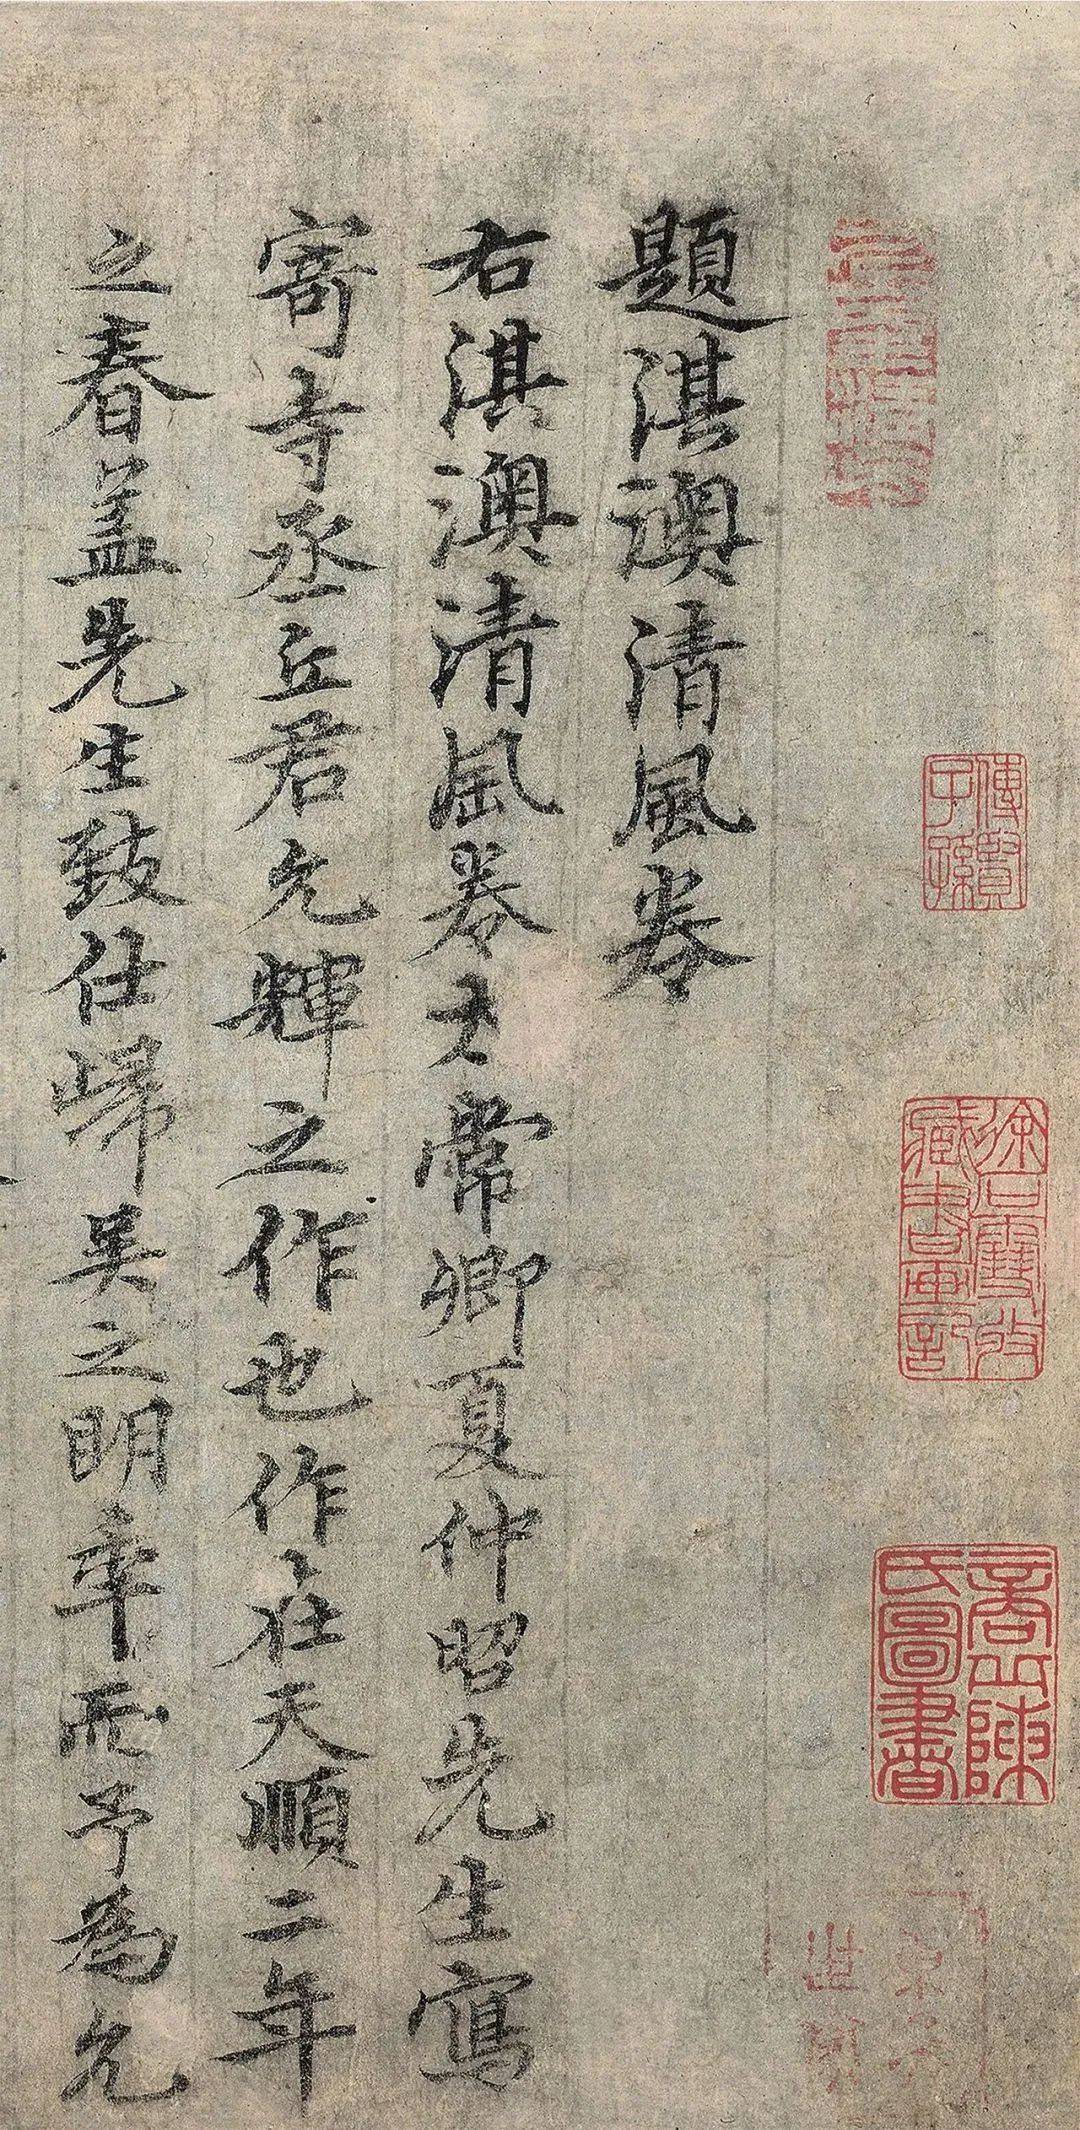 題淇澳清風卷
右淇澳清風卷太常卿夏仲昭先生寫
寄寺丞丘君允輝之作也作在天順二年
之春蓋先生致仕歸吳之明年而予為允
傳寶子孫
徐石雪攷藏書畫記
陳氏圖書